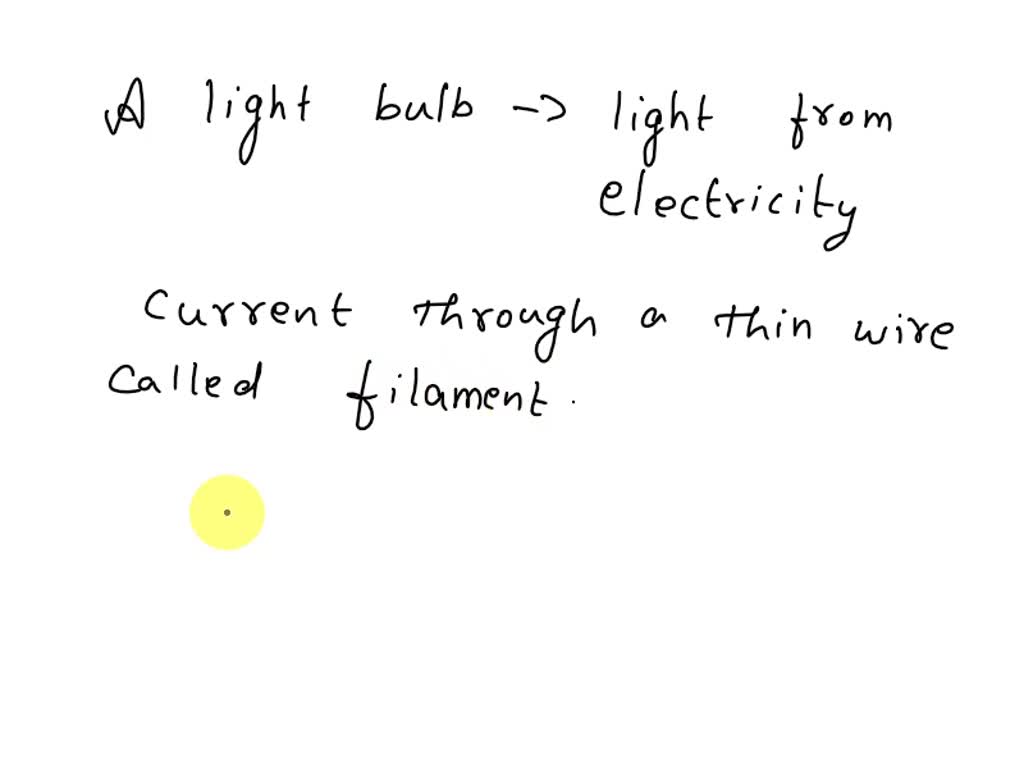 A light bulb -> light from
electricity
Current through a thin wire
called filament.